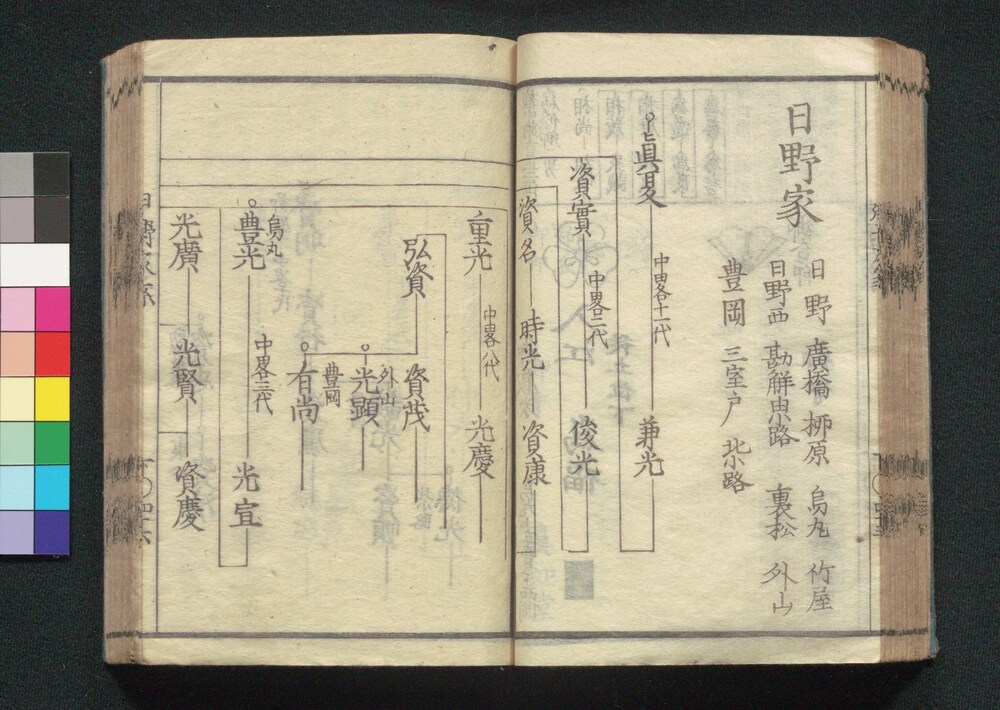 日野家
日野 廣橋 栁原 烏丸 竹屋
日野西 勘解由小路 裏松 外山
豊岡 三室戸 北小路
眞夏 中畧十一代 兼光
資實 中畧二代 俊光
資名 時光 資康
重光 中畧八代 光慶
弘資 資茂
外山
光顕
豊岡
有尚
烏丸
豊光 中畧三代 光宣
光廣 光賢 資慶